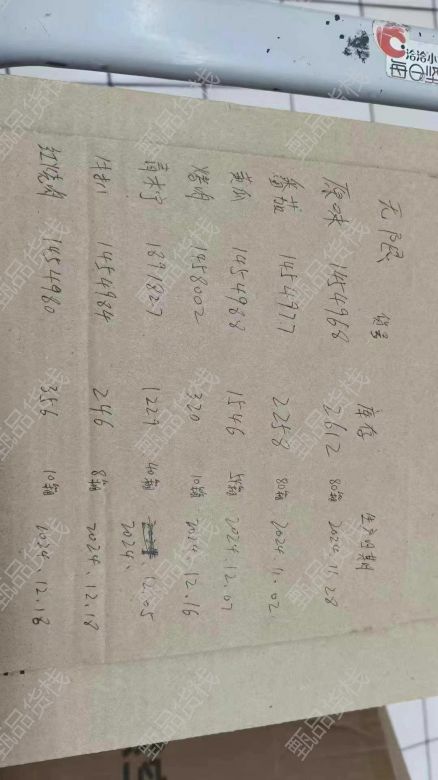 无限 货号 库存 生产日期
原味 1454968 2612 80箱 2024.11.28
番茄 1454977 2258 80箱 2024.11.02
黄瓜 1454988 1546 2024.12.07
烧烤 1458002 320 10箱 2024.12.16
1891827 1229 40箱 2024.12.05
1454984 246 8箱 2024.12.18
红烧肉 1454980 356 10箱 2024.12.18
甄品货栈